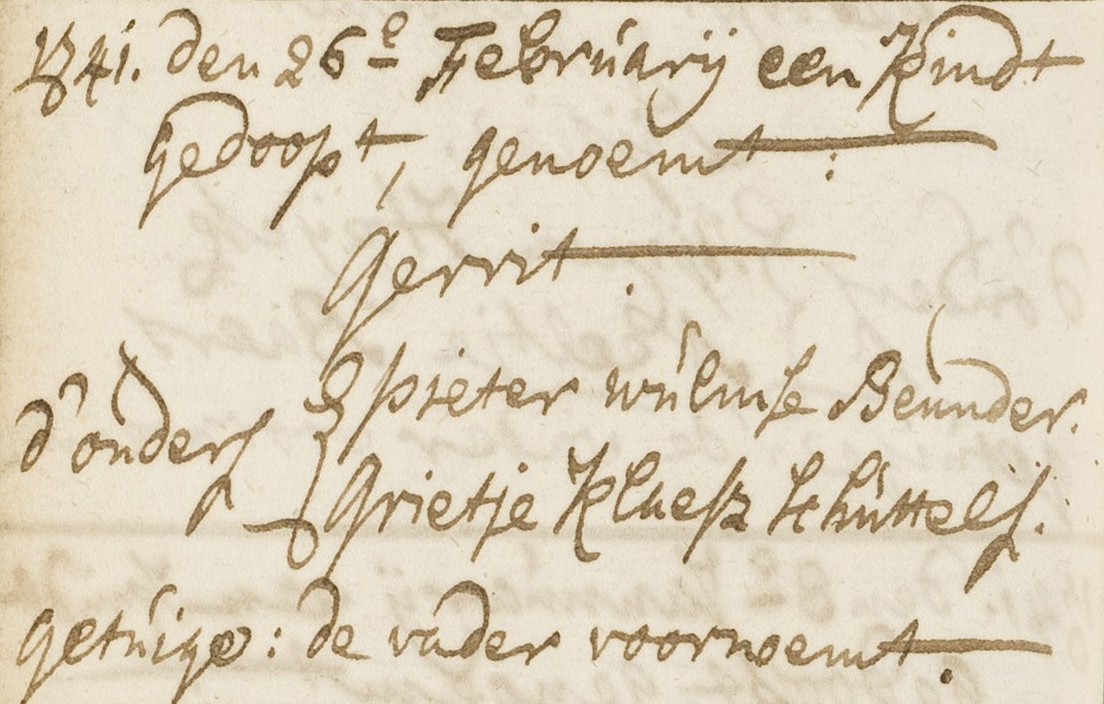 1741. den 26e Februarij een Kindt
gedoopt, genoemt :
Gerrit
d'ouders { pieter wilmse Beunder.
Grietje Klaesz schuttels.
getuige: de vader voornoemt.